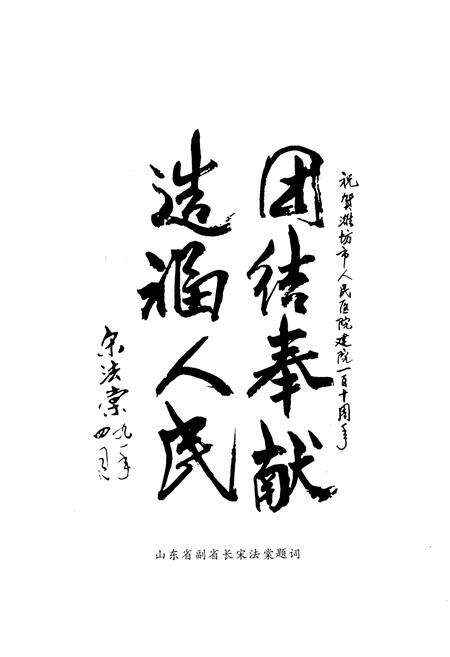 祝贺潍坊市人民医院建院一百十周年
团结奉献
造福人民
宋法棠
九一年
四月
山东省副省长宋法棠题词